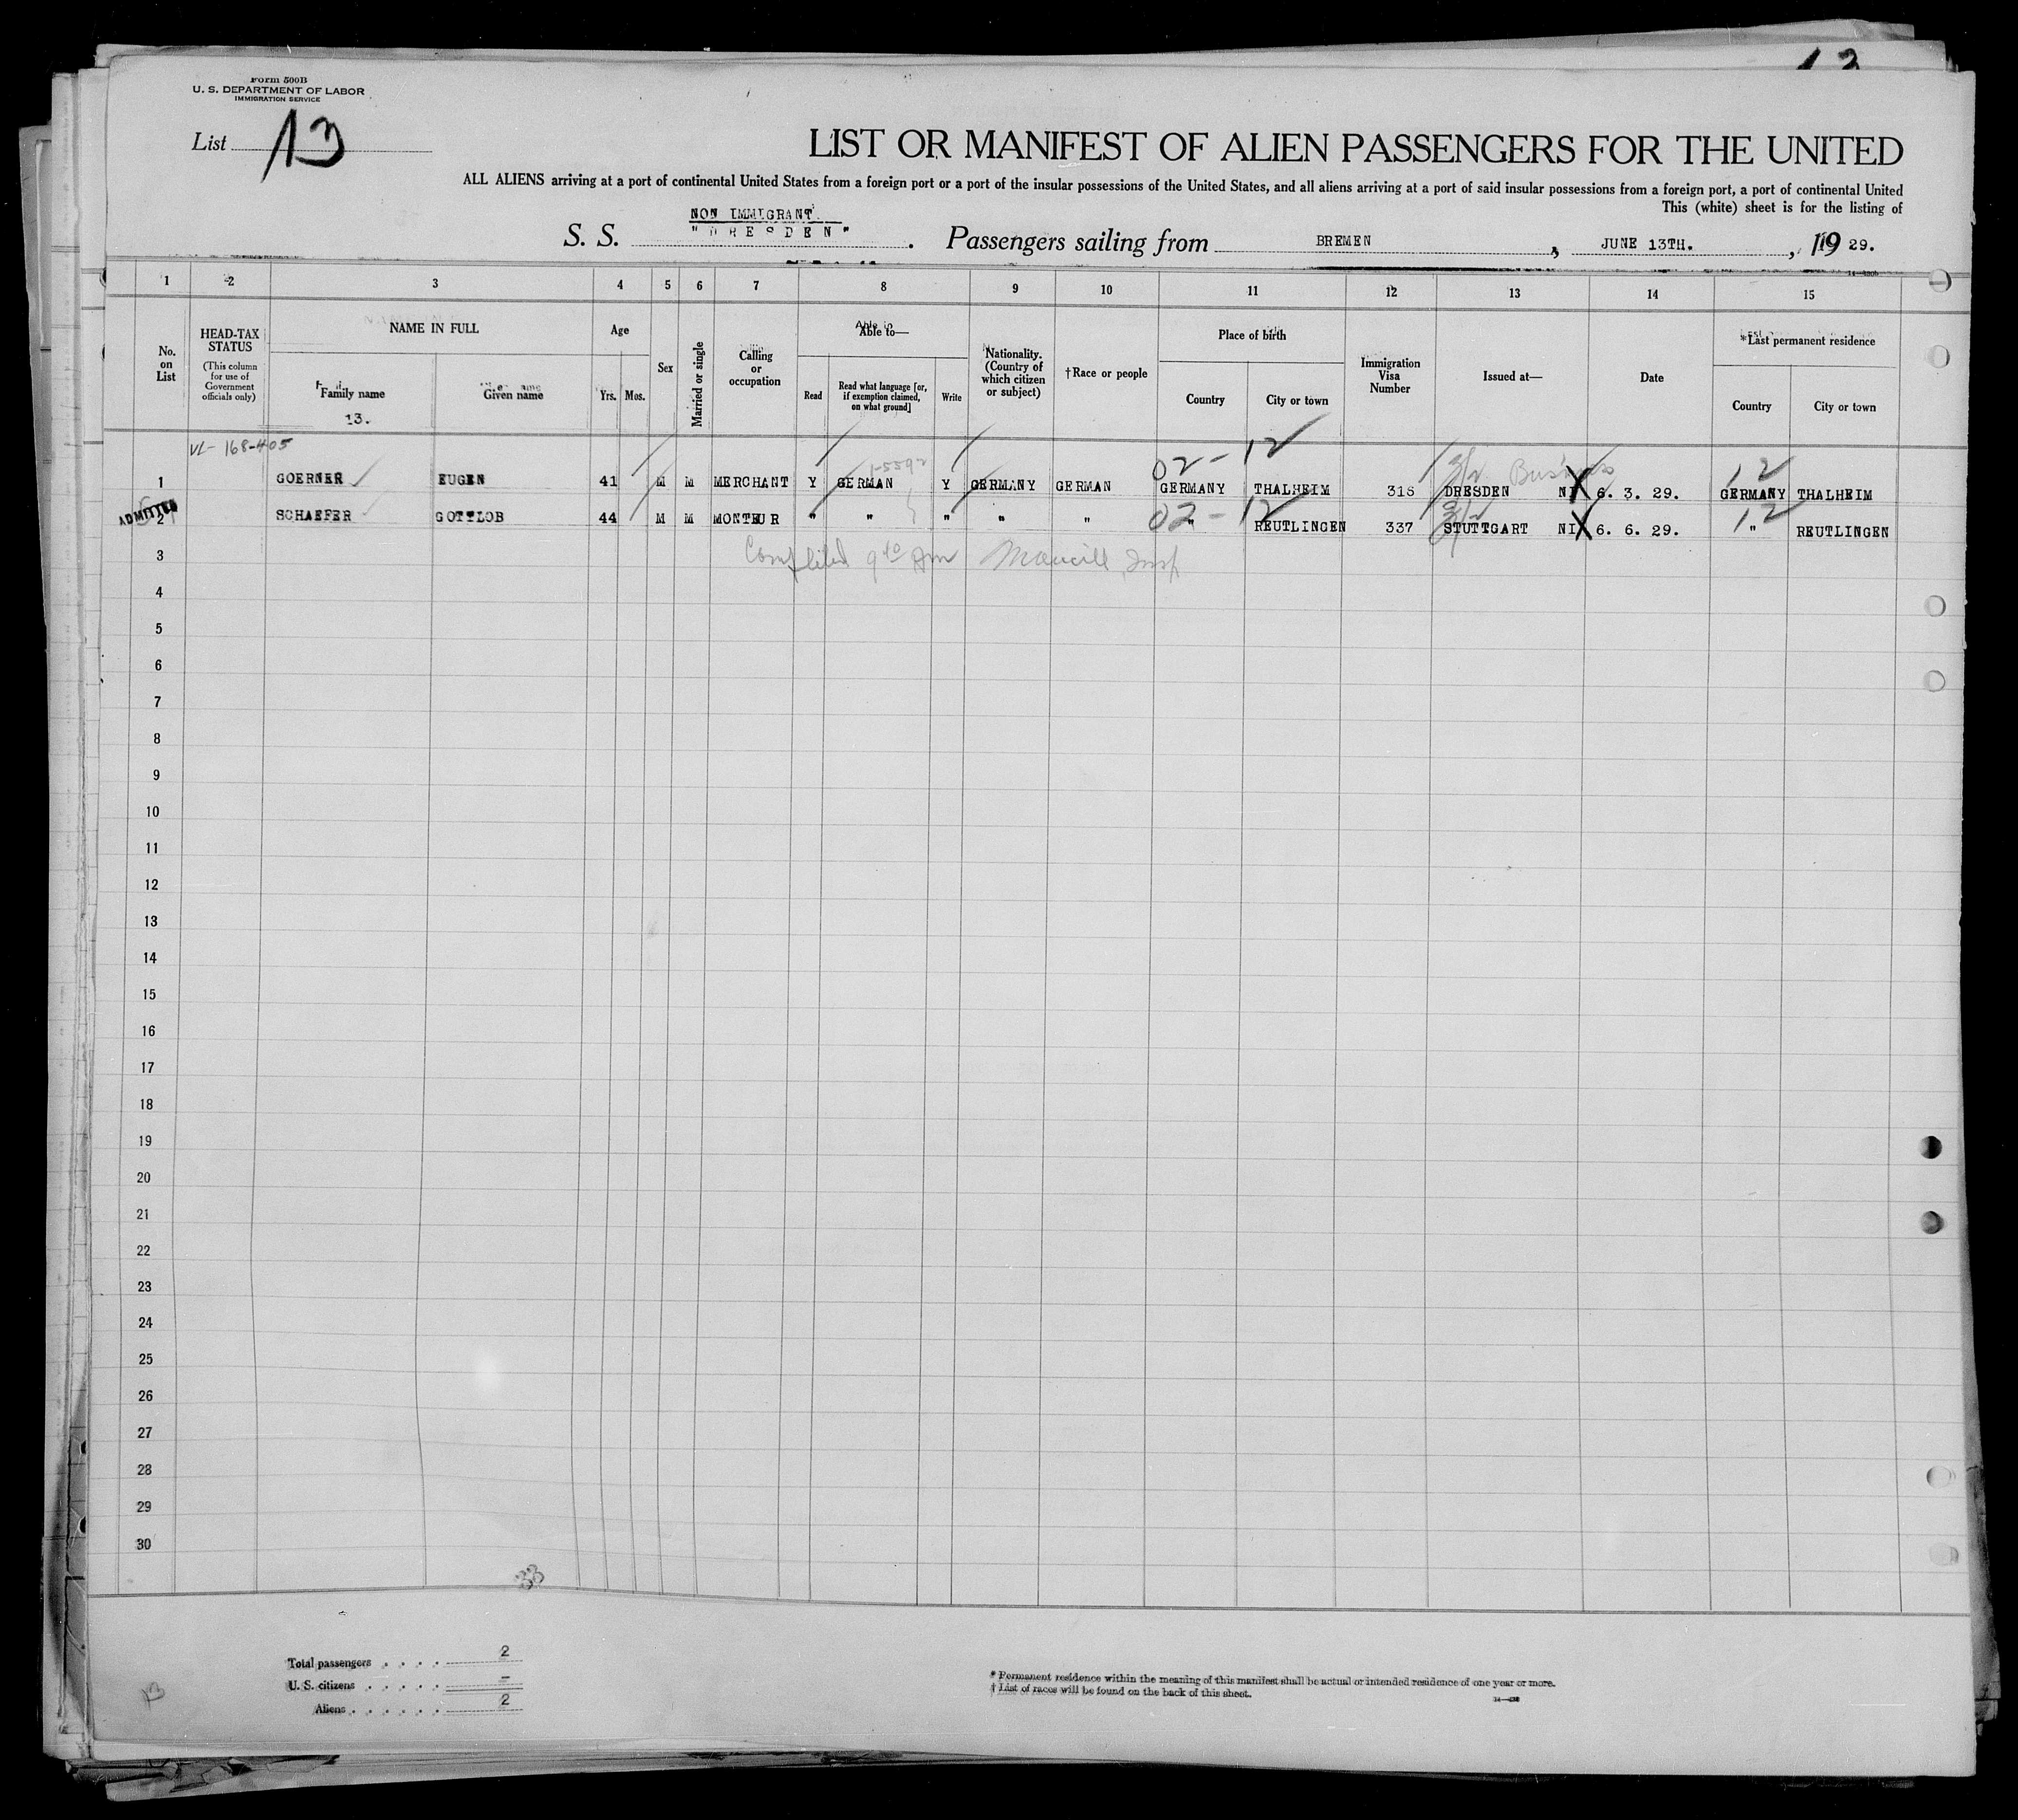 13
Form 500B
U. S. DEPARTMENT OF LABOR
IMMIGRATION SERVICE
List 13
LIST OR MANIFEST OF ALIEN PASSENGERS FOR THE UNITED
ALL ALIENS arriving at a port of continental United States from a foreign port or a port of the insular possessions of the United States, and all aliens arriving at a port of said insular possessions from a foreign port, a port of continental United
This (white) sheet is for the listing of
NON IMMIGRANT
S. S. "DRESDEN". Passengers sailing from BREMEN, JUNE 13TH., 1929.
1 2 3 4 5 6 7 8 9 10 11 12 13 14 15
No. on List
HEAD-TAX STATUS
(This column for use of Government officials only)
NAME IN FULL
Family name
13.
Given name
Age
Yrs. Mos.
Sex
Married or single
Calling or occupation
Able to—
Read
Read what language [or, if exemption claimed, on what ground]
Write
Nationality. (Country of which citizen or subject)
†Race or people
Place of birth
Country
City or town
Immigration Visa Number
Issued at—
Date
*Last permanent residence
Country
City or town
168-405
02-12 12
1 GOERNER EUGEN 41 M M MERCHANT Y GERMAN Y GERMANY GERMAN GERMANY THALHEIM 318 DRESDEN NI 6. 3. 29. GERMANY THALHEIM
02-12 12
ADMITTED
2 SCHAEFER GOTTLOB 44 M M MONTEUR " " " " " " REUTLINGEN 337 STUTTGART NI 6. 6. 29. " REUTLINGEN
3
4
5
6
7
8
9
10
11
12
13
14
15
16
17
18
19
20
21
22
23
24
25
26
27
28
29
30
33
Total passengers . . . . 2
U. S. citizens . . . . . –
Aliens . . . . . . 2
13
* Permanent residence within the meaning of this manifest shall be actual or intended residence of one year or more.
† List of races will be found on the back of this sheet.